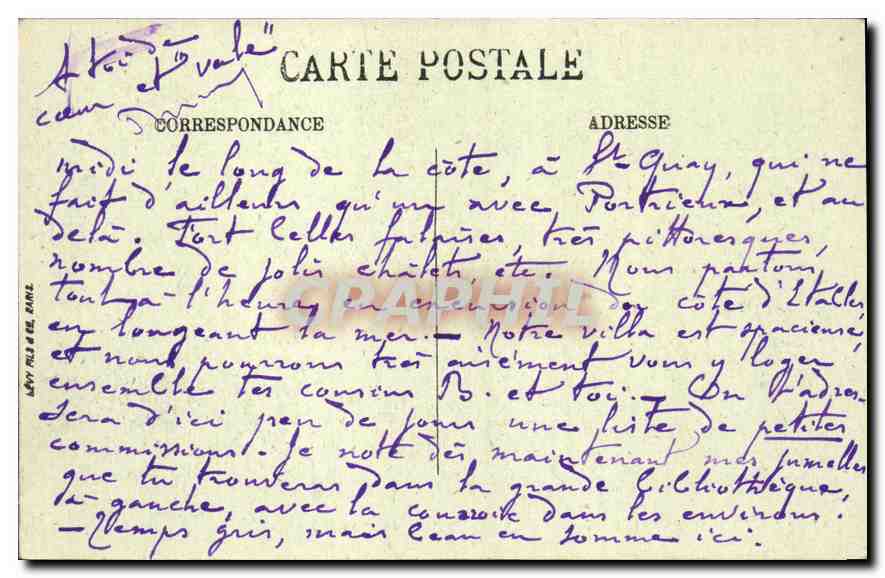 A toi de
cœur et "vale"
CARTE POSTALE
CORRESPONDANCE
ADRESSE
midi le long de la côte, à St-Quay, qui ne
fait d'ailleurs qu'un avec Portrieux, et au
delà. Fort belles falaises, très pittoresques,
nombre de jolis châlets, etc. Nous partons
tout-à-l'heure en excursion du côté d'Etables,
en longeant la mer. — Notre villa est spacieuse,
et nous pourrons très aisément vous y loger
ensemble tes cousins B. et toi. — On t'adres-
sera d'ici peu de jours une liste de petites
commissions. Je note dès maintenant mes jumelles
que tu trouveras dans la grande bibliothèque,
à gauche, avec la courroie dans les environs.
— Temps gris, mais beau en somme ici.
LÉVY FILS & CIE, PARIS
CPARPHIL